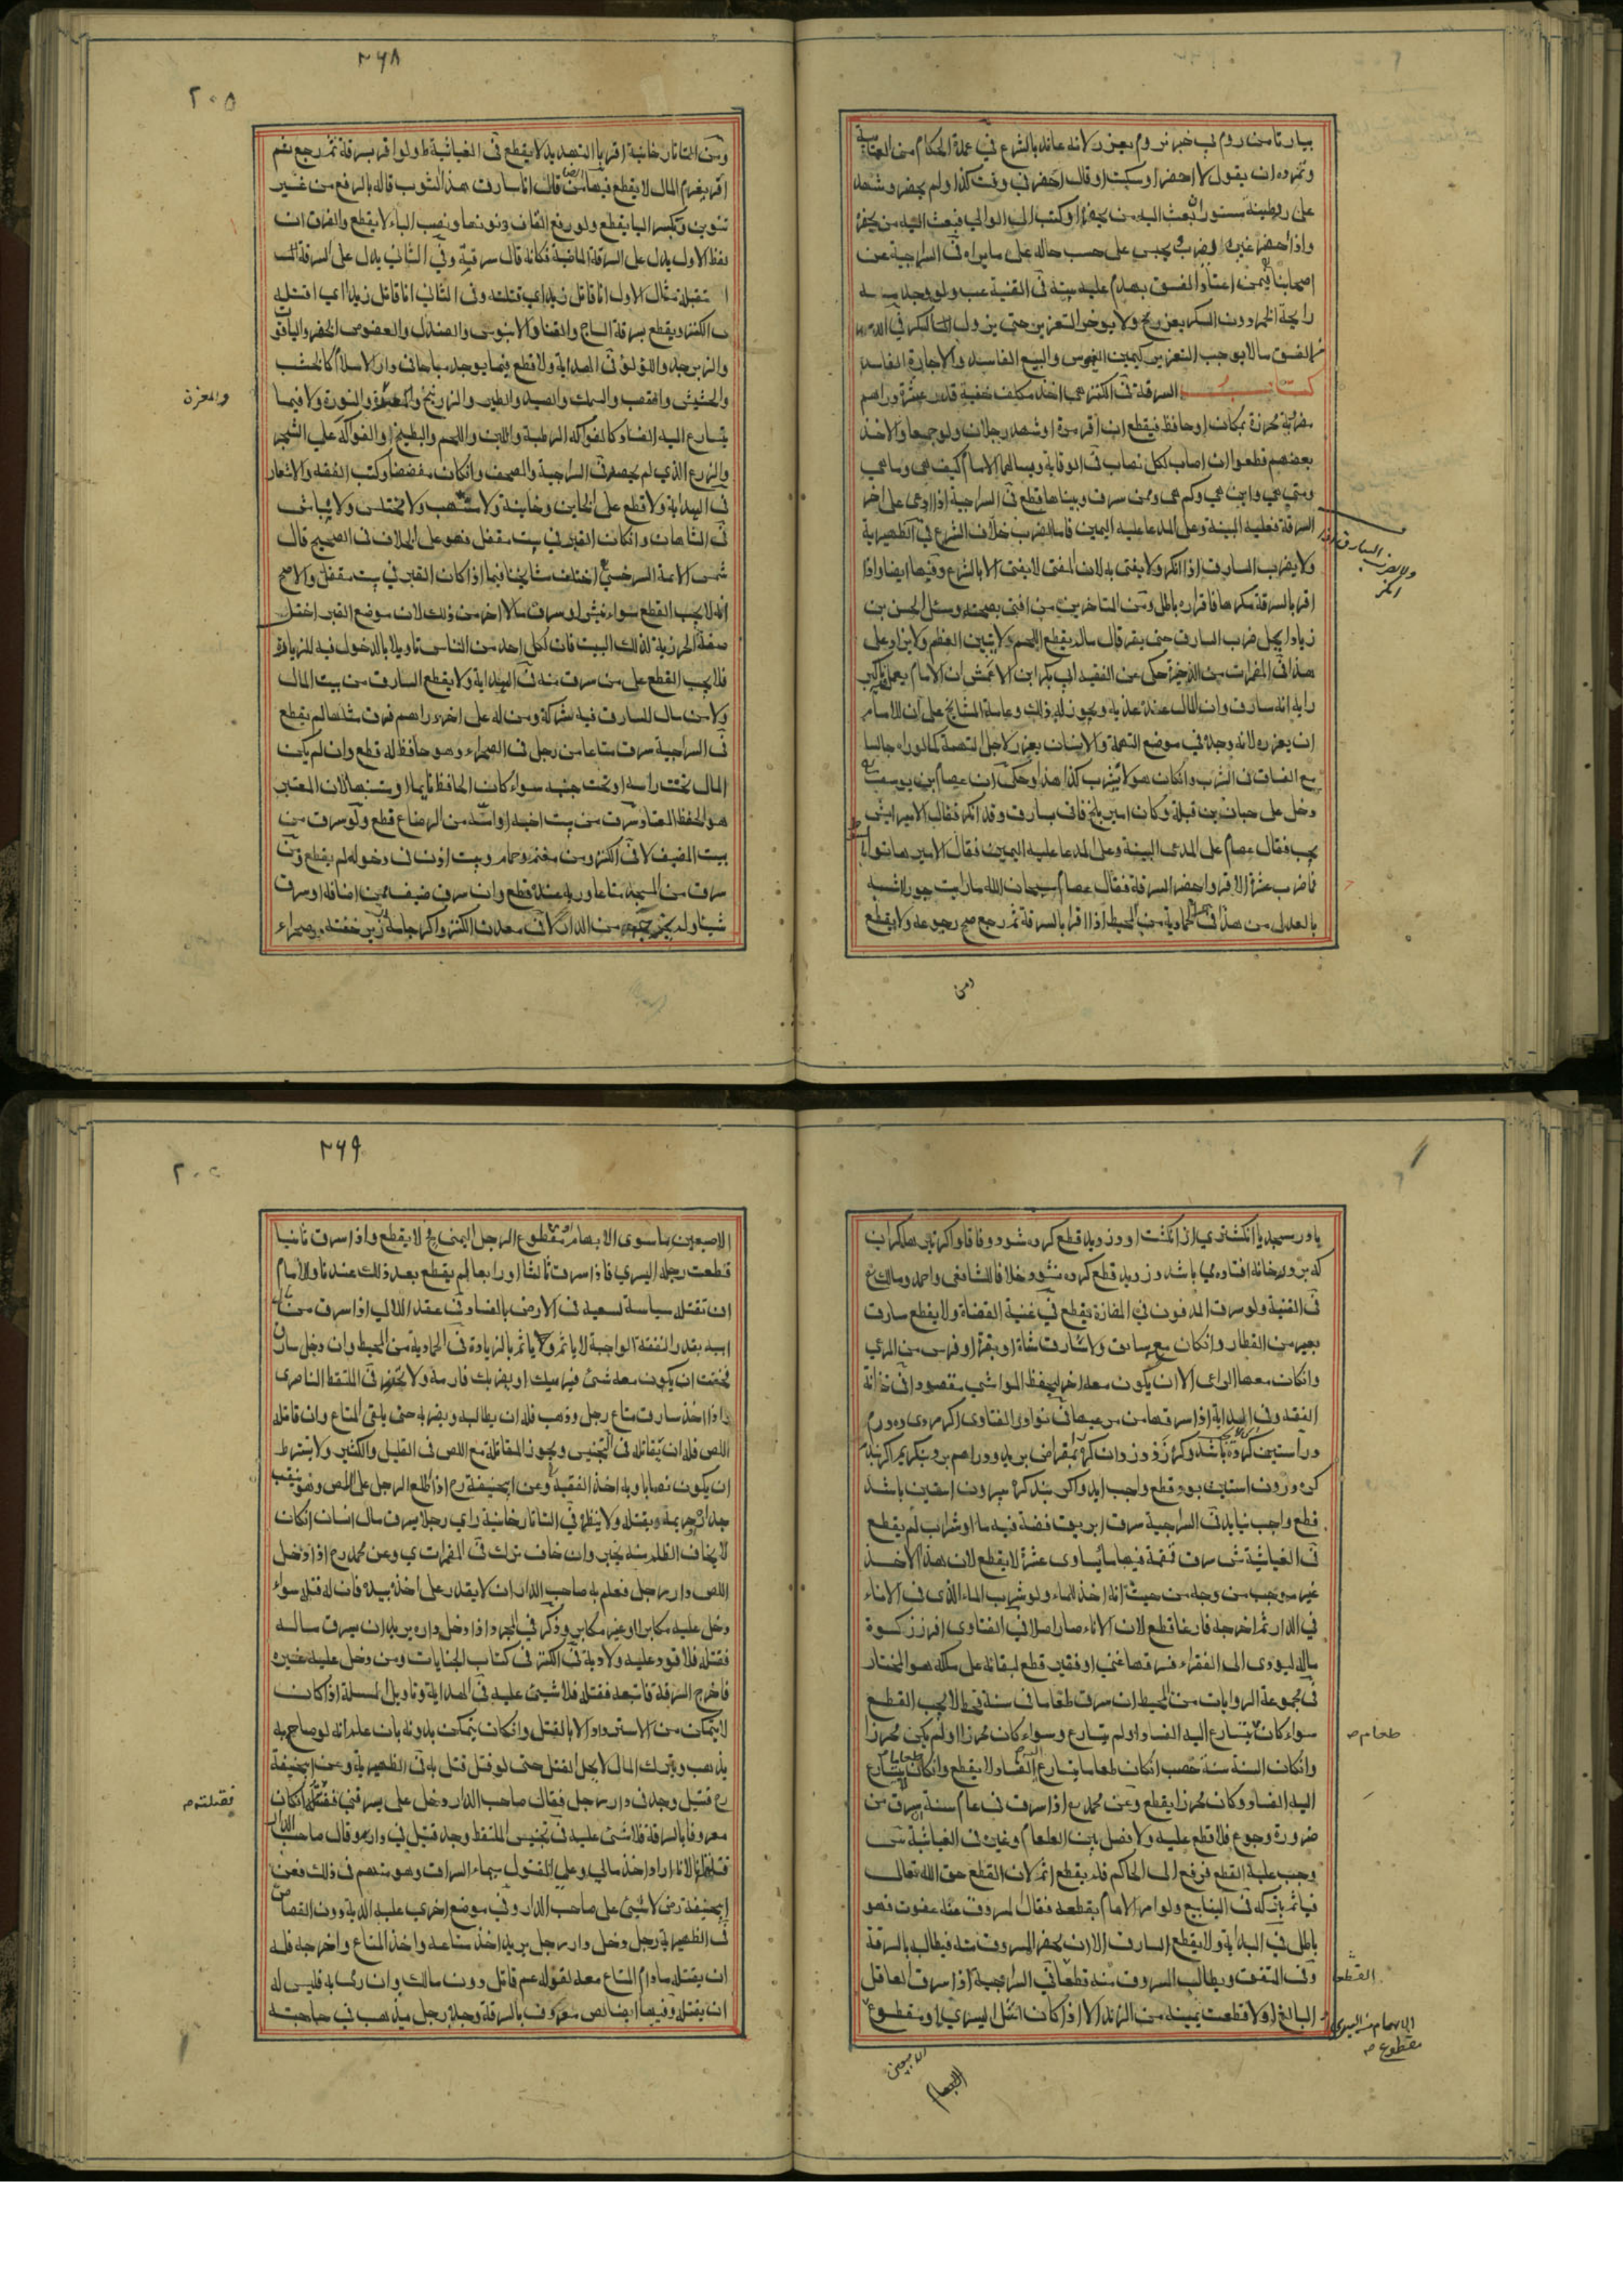 بيار تا من روم في خبر نروم يعزر لانه عاند بالشرع في عمدة الحكام من
وتمرده ان يقول لا احضر او سكت او قال احضر في وقت كذا ولم يحضر وشهد
على مستور بعث اليه من يحضره او كتب الى الوالي فبعث اليه من يحضره
واذا احضر يجبى على حسب حاله على ما يراه في السراجية عن
اصحابنا فيمن اعتاد الفسق يهدم عليه بيته في القنية عب ولو وجد منه
رايحة الخمر دون السكر يعزر ولا يوخر التعزير حتى يزول السكر في
من الفسق ما لا يوجب التعزير كيمين الغموس والبيع الفاسد والاجارة الفاسدة
السرقة في الكنز هي اخذ مكلف خفية قدر عشرة دراهم
مضروبة محرزة بمكان او حافظ فيقطع ان اقر مرة او شهد رجلان ولو جمعا والاخذ
بعضهم قطعوا ان اصاب لكل نصاب في الوقاية ويسالهما الامام كيف هي وما هي
ومتى هي واين هي وكم هي وممن سرق وبيناها قطع في السراجية اذا ادعى على اخر
السرقة فعليه البينة وعلى المدعا عليه اليمين فاما الضرب خلاف الشرع في الظهيرية
ولا يضرب السارق اذا انكر ولا يفتى به لان المفتى لا يفتى الا بالشرع وفيها ايضا واذا
اقر بالسرقة مكرها فاقراره باطل ومن المتاخرين من افتى بصحته وسئل الحسن بن
زياد ايحل ضرب السارق حتى يقر قال ما لم يقطع اللحم ولا يتبين العظم ولا يزاد على
هذا في المضمرات من الذخيرة حكى عن الفقيه ابي بكر ابن الاعمش ان الامام يعمل باكبر
رايه انه سارق وان المال عنده عذبه ويجوز له ذلك وعامة المشايخ على ان للامام
ان يعزره لانه وجده في موضع التهمة والانسان يعزر لاجل التهمة كما لو راه جالسا
مع الفساق في الشرب وان كان هو لا يشرب كذا هذا وحكى ان عصام بن يوسف
دخل على حيان بن قبلة وكان امير بلخ فاتي بسارق وقد انكر فقال الامير ايش
يجب فقال عصام على المدعى البينة وعلى المدعا عليه اليمين فقال الامير هاتوا
فاضرب عشرة الا اقر واحضر السرقة فقال عصام سبحان الله ما رايت جورا اشبه
بالعدل من هذا في الحمادية من المحيط اذا اقر بالسرقة ثم رجع صح رجوعه ولا يقطع
ومن
٢٦٨
٢٠٥
ومن التاتارخانية اقر بالتهديد لا يقطع في الغياثية ط ولو اقر بسرقة ثم رجع ثم
اقر يغرم المال لا يقطع فيها ايضا قال انا سارق هذا الثوب قاله بالرفع من غير
تنوين وبكسر البا يقطع ولو رفع القاف ونونها ونصب الباء لا يقطع والفرق ان
لفظ الاول يدل على السرقة الماضية فكانه قال سرقته وفي الثاني يدل على السرقة المست
قبلة مثال الاول انا قاتل زيد اي قتلته وفي الثاني انا قاتل زيدا اي اقتله
في الكنز ويقطع بسرقة الساج والقنا والابنوس والصندل والفصوص الخضر والياقوت
والزبرجد واللؤلؤ في الهداية ولا قطع فيما يوجد مباحا في دار الاسلام كالخشب
والحشيش والقصب والسمك والصيد والطير والزرنيخ والنورة ولا فيما
والمغرة
يتسارع اليه الفساد كالفواكه الرطبة واللبن واللحم والبطيخ والفواكه على الشجر
والزرع الذي لم يحصد في السراجية والمصحف وان كان مفضضا وكتب الفقه والاشعار
في الهداية ولا قطع على الخاين وخاينة ولا منتهب ولا مختلس ولا نباش
في الشاهان وان كان القبر في بيت مقفل فهو على الخلاف في الصحيح قال
شمس الائمة السرخسي اختلف مشايخنا فيما اذا كان القبر في بيت مقفل والاصح
انه لا يجب القطع سواء نبش او سرق مالا اخر من ذلك لان موضع القبر اختل
صفة الحرزية لذلك البيت فان لكل احد من الناس تاويلا بالدخول فيه للزيارة
فلا يجب القطع على من سرق منه في الهداية ولا يقطع السارق من بيت المال
ولا من مال للسارق فيه شركة ومن له على اخر دراهم فسرق مثلها لم يقطع
في السراجية سرق متاعا من رجل في الصحراء وهو حافظ له قطع وان لم يكن
المال تحت راسه او تحت جنبه سواء كان الحافظ نايما او متنبها لان المعتبر
هو الحفظ المعتاد سرق من بيت اخيه او امه من الرضاع قطع ولو سرق من
بيت المضيف لا في الكنز ومن مغنم وحمام وبيت اذن في دخوله لم يقطع ومن
سرق من المسجد متاعا وربه عنده قطع وان سرق ضيف ممن اضافه او سرق
شيئا ولم يخرجه من الدار لا في معدن الكنز واكر جامه زير خفته در صحراء
يا در مسجد يا انكشتري از انكشت او دزديد قطع كرده شود وفاقا واكر
كه بر در خانه افتاده مي باشد دزديد قطع كرده نشود خلافا للشافعي واحمد ومالك
في القنية ولو سرق المدفون في المفازة يقطع في غنية القضاة ولا يقطع سارق
بعير من القطار وان كان مع سايق ولا سارق شاة او بقرة او فرس من المرعى
وان كان معها الراعي الا ان يكون معه اخر ليحفظ المواشي مقصودا في خزانة
الفقه وفي الهداية اذا سرقها من مرعيها في نوادر الفتاوى اكر مردى ده درم
در استين كرده باشد
كره درون استين بود قطع واجب ايد واكر بند كره بيرون استين باشد
قطع واجب نيايد في السراجية سرق ابريق فضة فيه ماء او شراب لم يقطع
في الغياثية ش سرق قمقمة فيها ما يساوى عشرة لا يقطع لان هذا الاخذ
غير موجب من وجه من حيث انه اخذ للماء ولو شرب الماء الذى في الاناء
في الدار ثم اخرجه فارغا قطع لان الاناء صار اصلا في الفتاوى افرز زكوة
ماله ليؤدى الى الفقراء فسرقها غني او فقير قطع لبقائه على ملكه هو المختار
في مجموعة الروايات من المحيط ان سرق طعاما في سنة قحط لا يجب القطع
سواء كان يتسارع اليه الفساد او لم يتسارع وسواء كان محرزا او لم يكن محرزا
طعام صح
وان كان السنة سنة خصب ان كان طعاما يتسارع اليه الفساد لا يقطع وان كان طعاما لا يتسارع
اليه الفساد وكان محرزا يقطع وعن محمد رح اذا سرق في عام سنة من
ضرورة وجوع فلا قطع عليه ولا فصل بين الطعام وغيره في الغياثية
وجب عليه القطع فرفع الى الحاكم فلم يقطع اثم لان القطع حق الله تعالى
فياثم بتركه في الينابيع ولو امر الامام بقطعه فقال المسروق منه عفوت فهو
باطل في الهداية ولا يقطع السارق الا ان يحضر المسروق منه فيطالب بالسرقة
وفي المتفق ويطالب المسروق منه قطعا في السراجية اذا سرق العاقل
القطع
البالغ اولا قطعت يمينه من الزند الا اذا كان اشل اليسرى او مقطوع
الابهام من اليسرى
مقطوع صح
الاصبعين
٢٦٩
الاصبعين ما سوى الابهام او مقطوع الرجل اليمنى فح لا يقطع واذا سرق ثانيا
قطعت رجله اليسرى فاذا سرق ثالثا او رابعا لم يقطع بعد ذلك عندنا وللامام
ان تقتله سياسة لسعيه في الارض بالفساد في عقد اللالي اذا سرق من مال
ابيه بقدر النفقة الواجبة لا ياثم وياثم بالزيادة في الحمادية من المحيط وان دخل سارق
فخفت ان يكون معه شئ فيرميك او يضربك فارمه ولا تحذره في الملتقط الناصرى
واذا اخذ سارق متاع رجل وذهب فله ان يطالبه ويضربه حتى يلقى المتاع وان قاتله
اللص فله ان يقاتله في التجنيس ويجوز المقاتلة مع اللص في القليل والكثير ولا يشترط
ان يكون نصابا وبه اخذ الفقيه وعن ابي حنيفة رح اذا اطلع الرجل على اللص وهو ينقب
جداره ويقتله ولا ينظره في التاتارخانية راى رجلا يسرق مال انسان ان كان
لا يخاف الظلم منه يخبر وان خاف ترك في المضمرات ي وعن محمد رح اذا دخل
اللص دار رجل فعلم به صاحب الدار ان لا يقدر على اخذه بيده فان له قتله سواء
دخل عليه مكابرا او غير مكابر وذكر في المجرد اذا دخل داره يريد ان يسرق ماله
فقتله فلا قود عليه ولا دية في الكنز في كتاب الجنايات ومن دخل عليه غيره
فاخرج السرقة فاتبعه فقتله فلا شيئ عليه في الهداية وتاويل المسلة اذا كان
لا يتمكن من الاسترداد الا بالقتل وان كان يتمكن بدونه بان علم انه لو صاح به
يذهب ويترك المال لا يحل القتل حتى لو قتل قتل به في الظهيرية وعن ابي حنيفة
رح قتيل وجد في دار رجل فقال صاحب الدار دخل على يسرقني فقتلته ان كان
فقتلته صح
معروفا بالسرقة فلا شئ عليه في تجنيس الملتقط وجد قتيل في دار وقال صاحب الدار
قتلته لانه اراد اخذ مالي وعلى المقتول سيماء السراق وهو متهم في ذلك فعن
ابي حنيفة رض لا شيئ على صاحب الدار وفي موضع اخرى عليه الدية دون القصاص
في الظهيرية رجل دخل دار رجل يريد اخذ متاعه واخذ المتاع واخرجه فله
ان يقتله ما دام المتاع معه لقوله عم قاتل دون مالك وان رمى به فليس له
ان يقتله وفيها ايضا لص معروف بالسرقة وجده رجل يذهب في حاجته